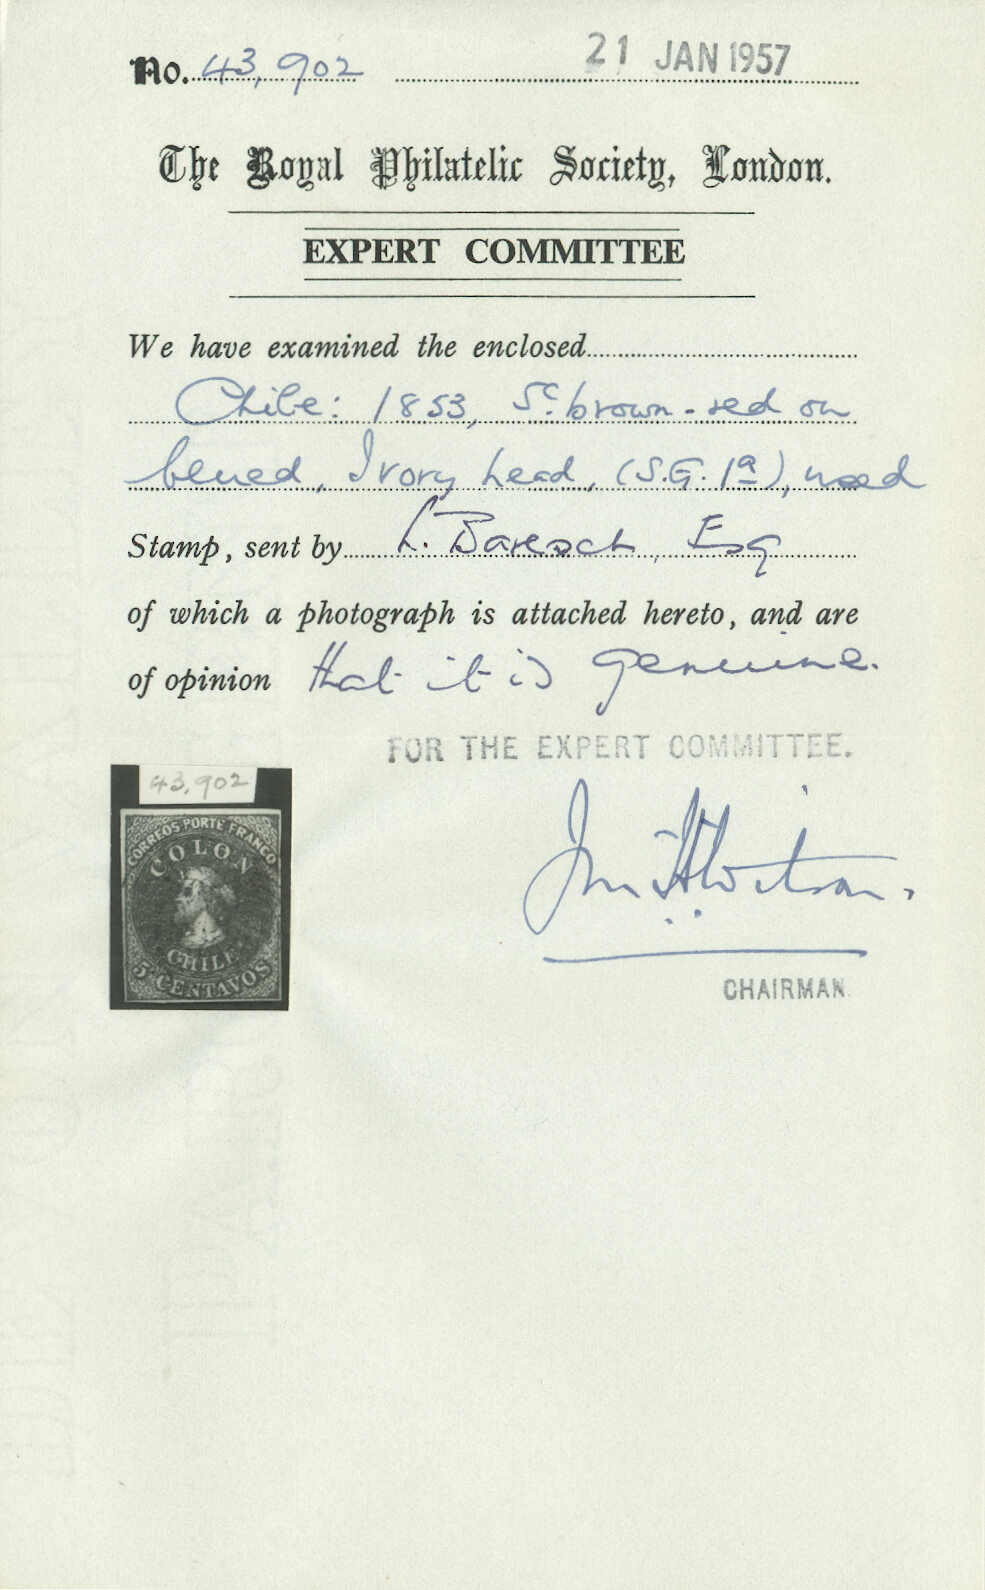 No. 43,902
21 JAN 1957
The Royal Philatelic Society, London.
EXPERT COMMITTEE
We have examined the enclosed
Chile: 1853, 5c. brown-red on
blued, Ivory head, (S.G. 1a), used
Stamp, sent by L. Baresch, Esq
of which a photograph is attached hereto, and are
of opinion that it is genuine.
FOR THE EXPERT COMMITTEE.
43,902
CORREOS PORTE FRANCO
COLON
CHILE
5 CENTAVOS
CHAIRMAN